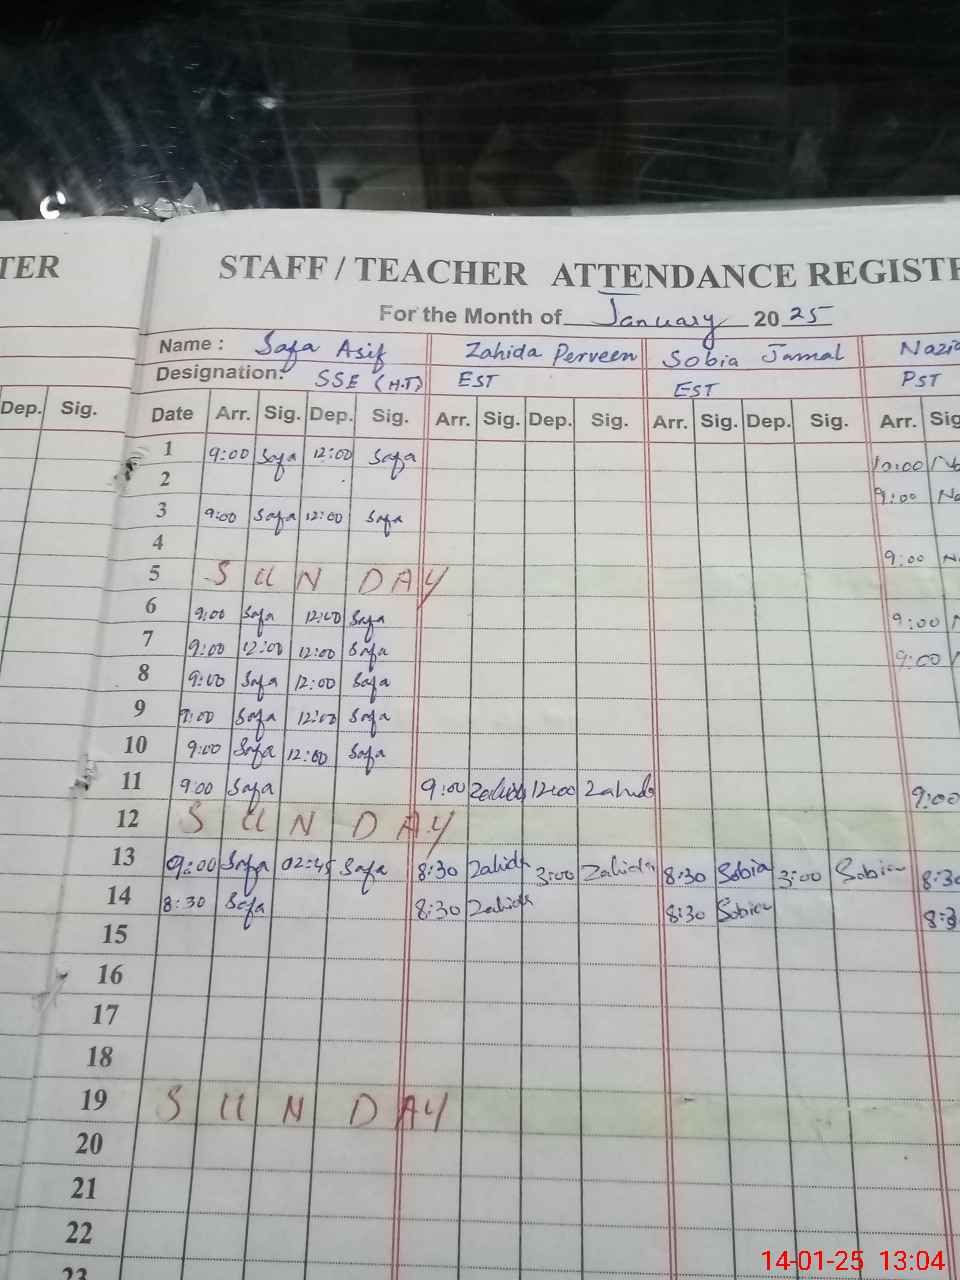 TER STAFF / TEACHER ATTENDANCE REGISTE
For the Month of January 20 25
Name : Safa Asif Zahida Perveen Sobia Jamal Nazi
Designation: SSE (H.T) EST EST PST
Dep. Sig. Date Arr. Sig. Dep. Sig. Arr. Sig. Dep. Sig. Arr. Sig. Dep. Sig. Arr. Sig
1 9:00 Safa 12:00 Safa 10:00 Na
2 9:00 Na
3 9:00 Safa 12:00 Safa
4 9:00 N
5 SUNDAY
6 9:00 Safa 12:00 Safa 9:00 N
7 9:00 12:00 12:00 Safa 9:00
8 9:00 Safa 12:00 Safa
9 9:00 Safa 12:00 Safa
10 9:00 Safa 12:00 Safa
11 9:00 Safa 9:00 Zahida 12:00 Zahida 9:00
12 SUNDAY
13 09:00 Safa 02:45 Safa 8:30 Zahida 3:00 Zahida 8:30 Sobia 3:00 Sobia 8:30
14 8:30 Safa 8:30 Zahida 8:30 Sobia 8:3
15
16
17
18
19 SUNDAY
20
21
22
23
14-01-25 13:04